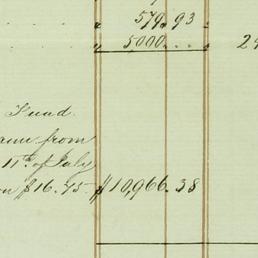 579.93
5000... 2
Fund.
from
11th of July
on $16.45 $10,966.38